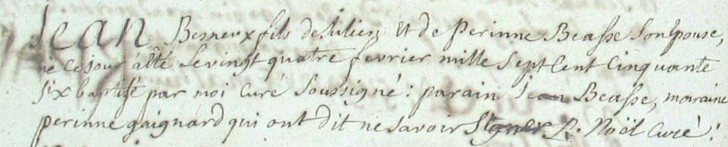 Jean Besneux fils de Julien et de Perinne Beasse son Epouse,
né ce jour a été le vingt quatre fevrier mille Sept Cent Cinquante
Six baptisé par noi Curé Soussigné : parain Jean Beasse, maraine
perinne gaignard qui ont dit ne savoir Signer P. Noël Curé.